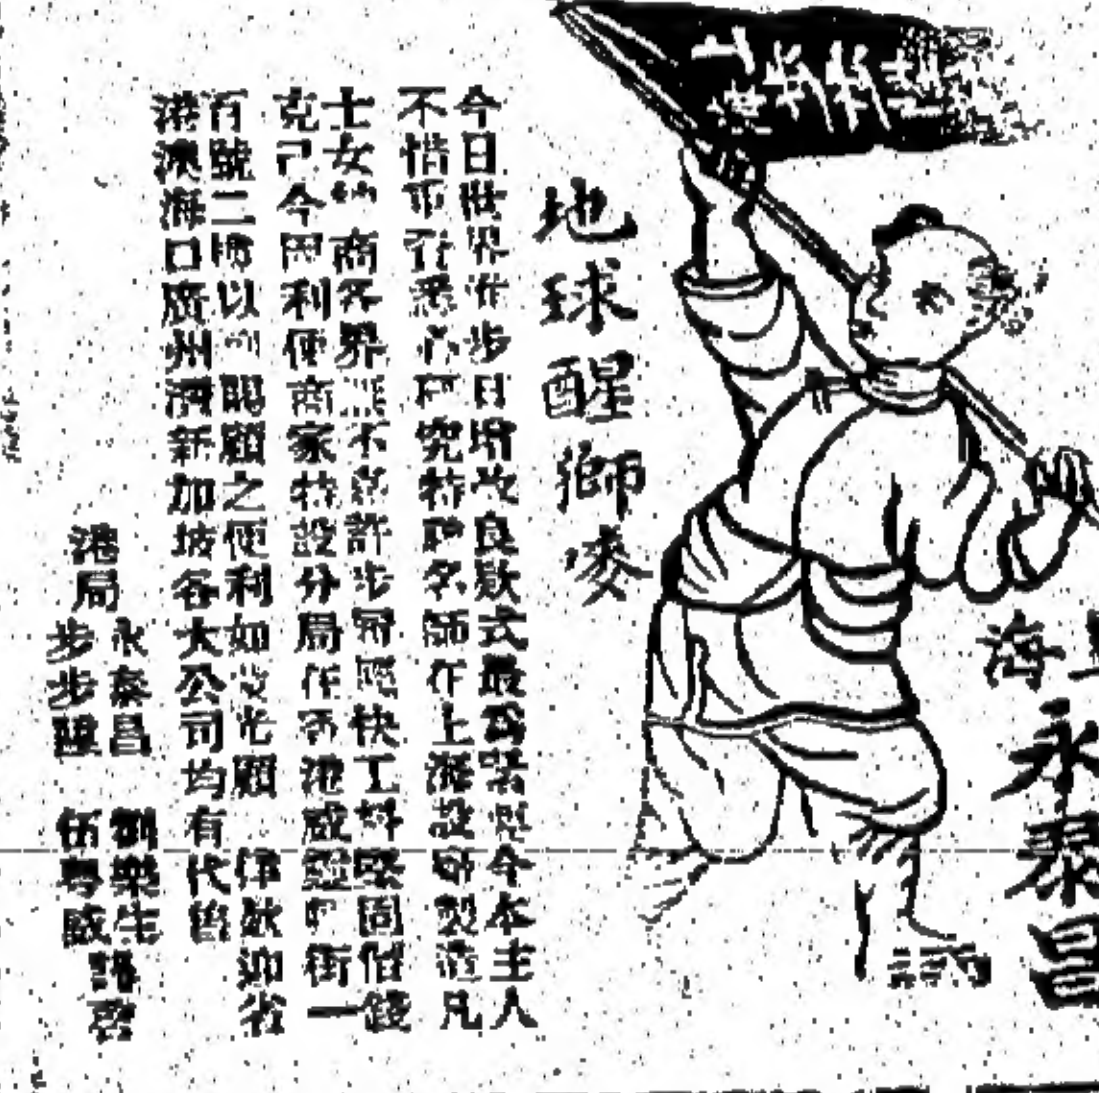 上海
永泰昌
地球醒獅嘜
今日世界進步日增改良款式最為緊要今本主人
不惜重資悉心研究特聘名師在上海設廠製造凡
士女 商各界無不 許步履 快工料堅固價錢
克己今因利便商家特設分局在香港威靈頓街一
百號二樓以 賜顧之便利如 光顧 歡迎省
港澳海口廣州灣新加坡各大公司均有代售
港局
永泰昌 劉樂生
步步陞 伍粵威
謹啓